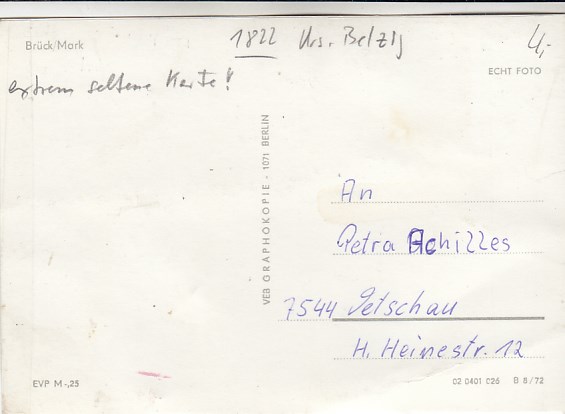 Brück/Mark
1822 Krs. Belzig
4,-
extrem seltene Karte!
ECHT FOTO
VEB GRAPHOKOPIE · 1071 BERLIN
An
Petra Achilles
7544 Vetschau
H. Heinestr. 12
EVP M -,25
02 0401 026 B 8/72